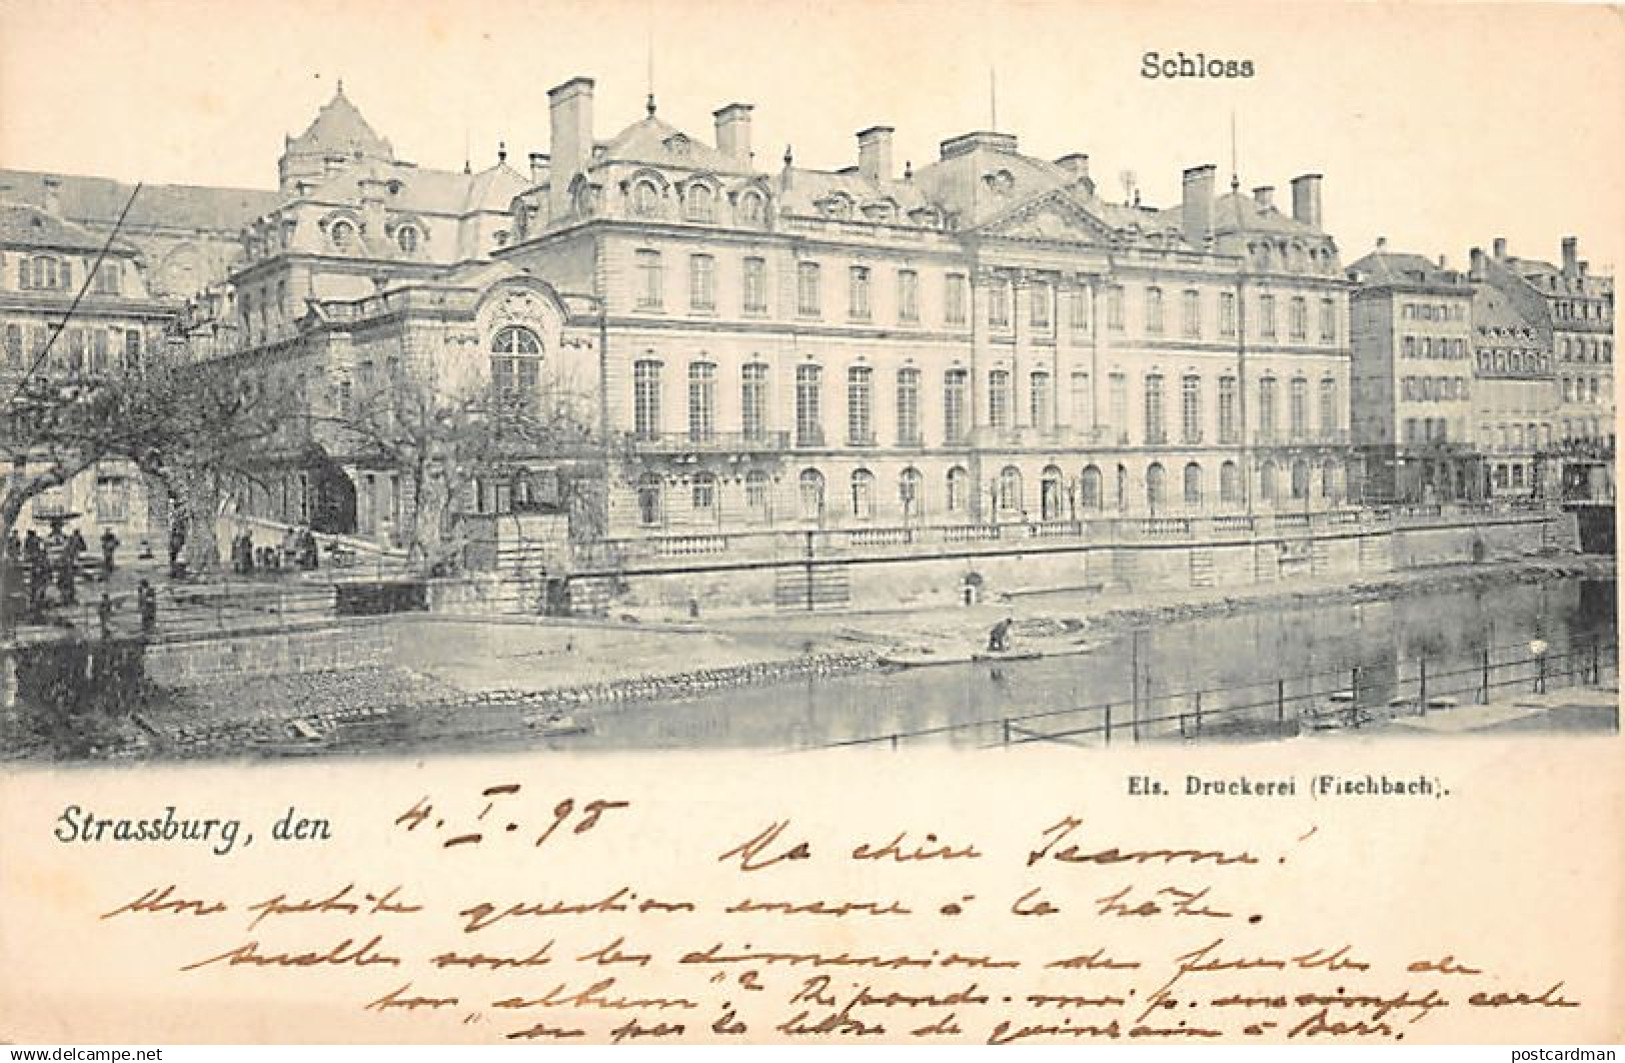 Schloss
Els. Druckerei (Fischbach).
Strassburg, den 4. I. 98
Ma chère Jeanne!
Une petite question encore à la hâte.
Quelles sont les dimensions des feuilles de
ton "album"? Réponds-moi p. une simple carte
ou par la lettre de quinzain à Barr!
postcardman
www.delcampe.net